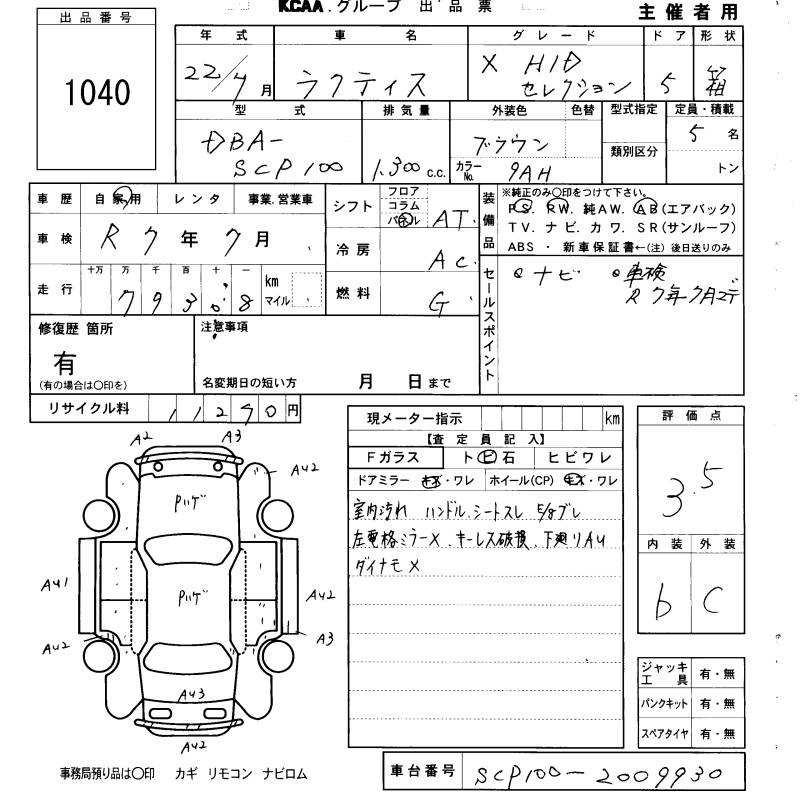 KCAA.グループ 出品票
主催者用
出品番号
1040
年式 車名 グレード ドア 形状
22/7月 ラクティス X HID セレクション 5 箱
型式 排気量 外装色 色替 型式指定 定員・積載
DBA-SCP100 1,300 c.c. ブラウン 5名
カラーNo. 9AH 類別区分 トン
車歴 自家用 レンタ 事業.営業車
車検 R7年7月
走行 十万 万 千 百 十 一
79308 km マイル
シフト フロア コラム パネル AT
冷房 AC
燃料 G
装備品 ※純正のみ〇印をつけて下さい。
PS. RW. 純AW. AB(エアバック)
TV. ナビ. カワ. SR(サンルーフ)
ABS ・ 新車保証書←(注) 後日送りのみ
セールスポイント
ナビ 車検
R7年7月
修復歴 箇所
有
(有の場合は〇印を)
注意事項
名変期日の短い方 月 日まで
リサイクル料 11270円
現メーター指示 km
【査定員記入】
Fガラス ト ビ 石 ヒビワレ
ドアミラー キズ・ワレ ホイール(CP) キズ・ワレ
室内汚れ ハンドル.シートスレ E/gブレ
左電格ミラーX.キーレス破損.下廻りAU
ダイナモX
評価点
3.5
内装 外装
b C
ジャッキ工具 有・無
パンクキット 有・無
スペアタイヤ 有・無
A2 A3
AU2
Pハゲ
AU1
Pハゲ
AU2
AU2 A3
AU3
AU2
事務局預り品は〇印 カギ リモコン ナビロム
車台番号 SCP100-2009930